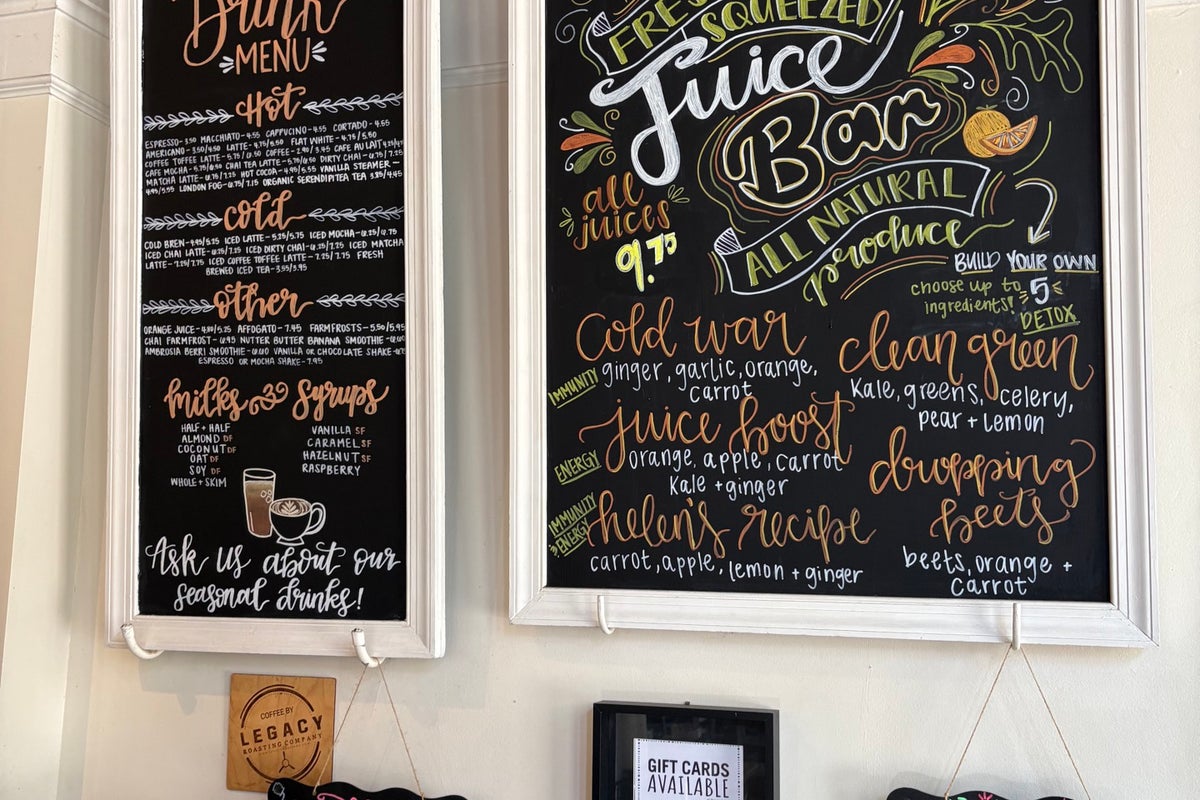 Drink
MENU
Hot
ESPRESSO-3.50 MACCHIATO-4.55 CAPPUCINO-4.55 CORTADO-4.55
AMERICANO-3.50/4.50 LATTE-4.75/5.50 FLAT WHITE-4.75/5.50
COFFEE TOFFEE LATTE-5.75/6.50 COFFEE-2.90/3.45 CAFE AU LAIT
CAFE MOCHA-5.75/6.50 CHAI TEA LATTE-5.75/6.50 DIRTY CHAI-6.75/7.25
MATCHA LATTE-6.75/7.25 HOT COCOA-4.95/5.55 VANILLA STEAMER-
4.95/5.55 LONDON FOG-6.75/7.25 ORGANIC SERENDIPITEA TEA 3.95/4.45
Cold
COLD BREW-4.95/5.25 ICED LATTE-5.25/5.75 ICED MOCHA-6.25/6.75
ICED CHAI LATTE-6.75/7.25 ICED DIRTY CHAI-6.75/7.25 ICED MATCHA
LATTE-7.25/7.75 ICED COFFEE TOFFEE LATTE-7.25/7.75 FRESH
BREWED ICED TEA-3.55/3.95
other
ORANGE JUICE-4.80/5.25 AFFOGATO-7.95 FARMFROSTS-5.50/5.95
CHAI FARMFROST-6.95 NUTTER BUTTER BANANA SMOOTHIE-
AMBROSIA BERRI SMOOTHIE- VANILLA OR CHOCOLATE SHAKE-
ESPRESSO OR MOCHA SHAKE-7.95
Milks & Syrups
HALF + HALF
ALMOND DF
COCONUT DF
OAT DF
SOY DF
WHOLE + SKIM
VANILLA SF
CARAMEL SF
HAZELNUT SF
RASPBERRY
Ask us about our
seasonal drinks!
FRESH
SQUEEZED
Juice
Bar
ALL NATURAL
produce
all
juices
9.75
BUILD YOUR OWN
choose up to 5
ingredients!
Cold war
IMMUNITY
ginger, garlic, orange,
carrot
juice boost
ENERGY
orange, apple, carrot
Kale + ginger
helen's recipe
IMMUNITY
& ENERGY
carrot, apple, lemon + ginger
DETOX
clean green
Kale, greens, celery,
pear + Lemon
dropping
beets
beets, orange +
carrot
COFFEE BY
LEGACY
ROASTING COMPANY
GIFT CARDS
AVAILABLE